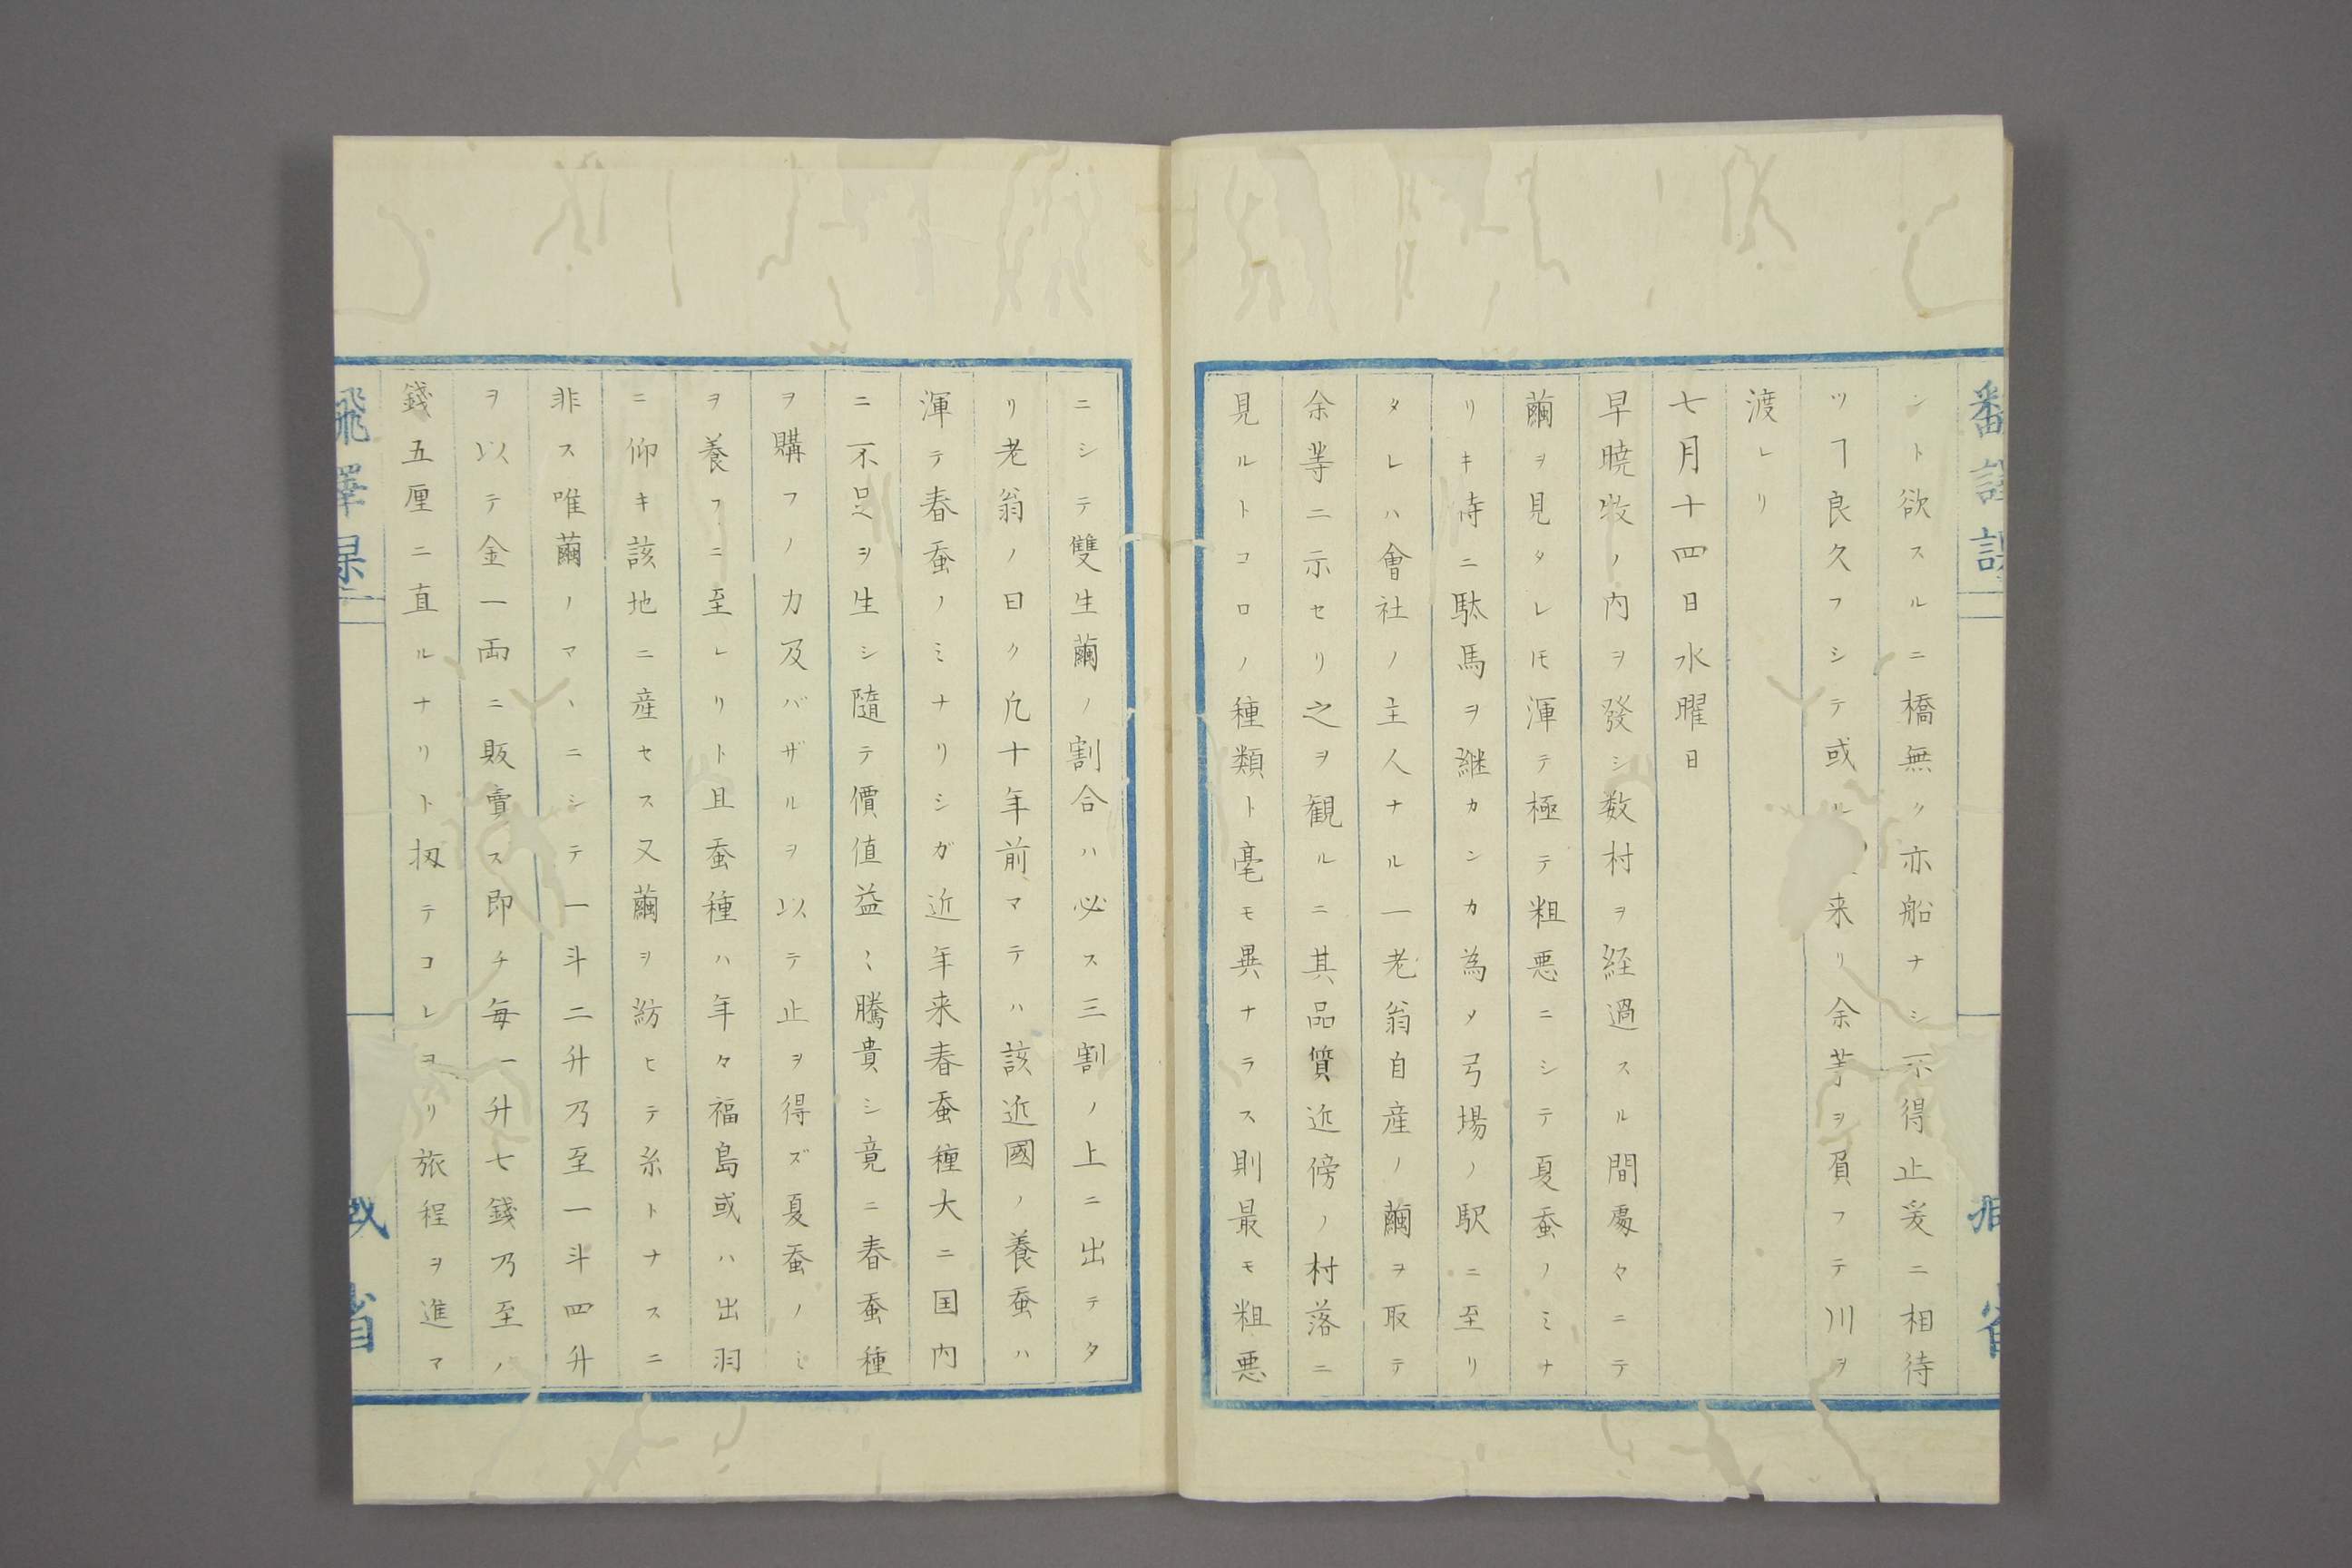 ント欲スルニ橋無ク亦船ナシ不得止爰ニ相待
ツヿ良久フシテ或ル 来リ余等ヲ負フテ川ヲ
渡レリ
七月十四日水曜日
早暁牧ノ内ヲ發シ数村ヲ経過スル間處々ニテ
繭ヲ見タレ𪜈渾テ極テ粗悪ニシテ夏蚕ノミナ
リキ時ニ駄馬ヲ継カンカ為メ弓場ノ駅ニ至リ
タレハ會社ノ主人ナル一老翁自産ノ繭ヲ取テ
余等ニ示セリ之ヲ観ルニ其品質近傍ノ村落ニ
見ルトコロノ種類ト毫モ異ナラス則最モ粗悪
ニシテ雙生繭ノ割合ハ必ス三割ノ上ニ出テタ
リ老翁ノ曰ク凢十年前マテハ該近國ノ養蚕ハ
渾テ春蚕ノミナリシガ近年来春蚕種大ニ国内
ニ不足ヲ生シ隨テ價値益〻騰貴シ竟ニ春蚕種
ヲ購フノ力及バザルヲ以テ止ヲ得ズ夏蚕ノミ
ヲ養フニ至レリト且蚕種ハ年々福島或ハ出羽
ニ仰キ該地ニ産セス又繭ヲ紡ヒテ糸トナスニ
非ス唯繭ノマヽニシテ一斗二升乃至一斗四升
ヲ以テ金一両ニ販賣ス即チ毎一升七錢乃至ノ
錢五厘ニ直ルナリト扨テコレヨリ旅程ヲ進マ
飜譯課
省